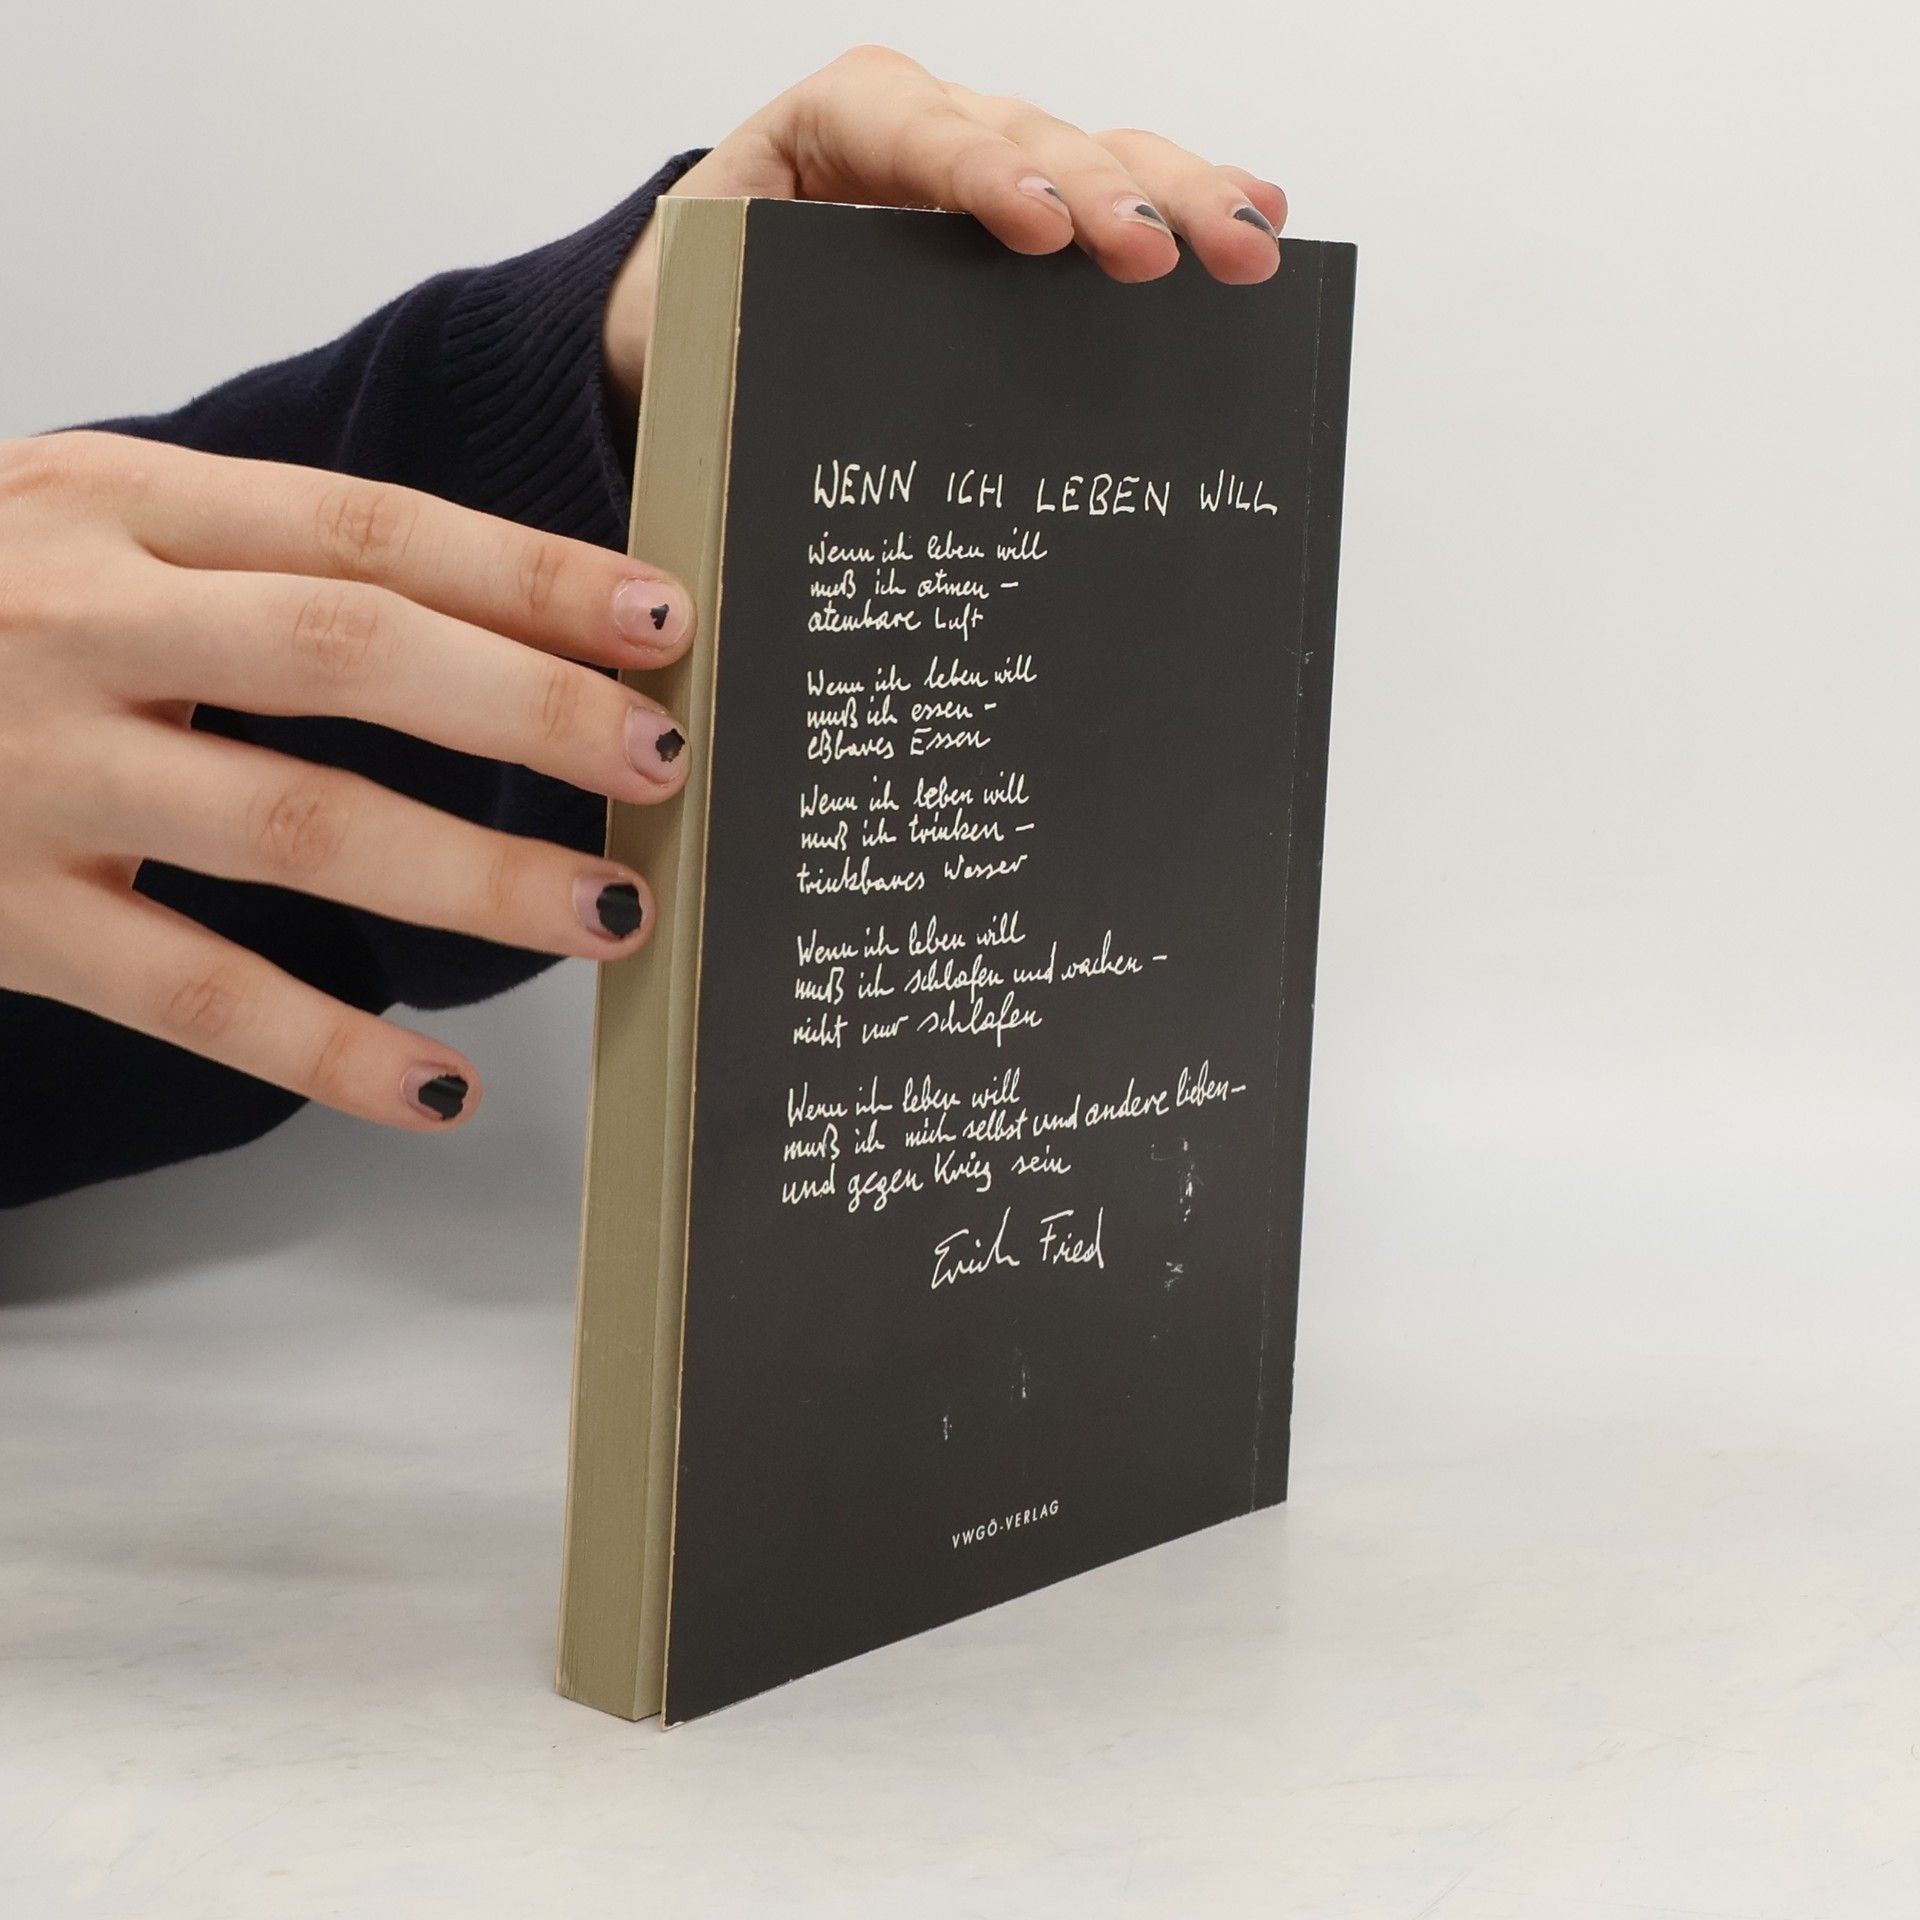 WENN ICH LEBEN WILL
Wenn ich leben will
muß ich atmen –
atembare Luft
Wenn ich leben will
muß ich essen –
eßbares Essen
Wenn ich leben will
muß ich trinken –
trinkbares Wasser
Wenn ich leben will
muß ich schlafen und wachen –
nicht nur schlafen
Wenn ich leben will
muß ich mich selbst und andere lieben –
und gegen Krieg sein
Erich Fried
VWGÖ-VERLAG